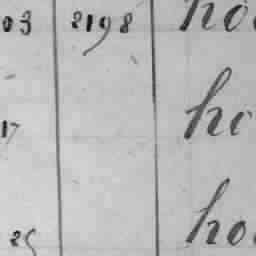 03 2198 ho
17 ho
25 ho